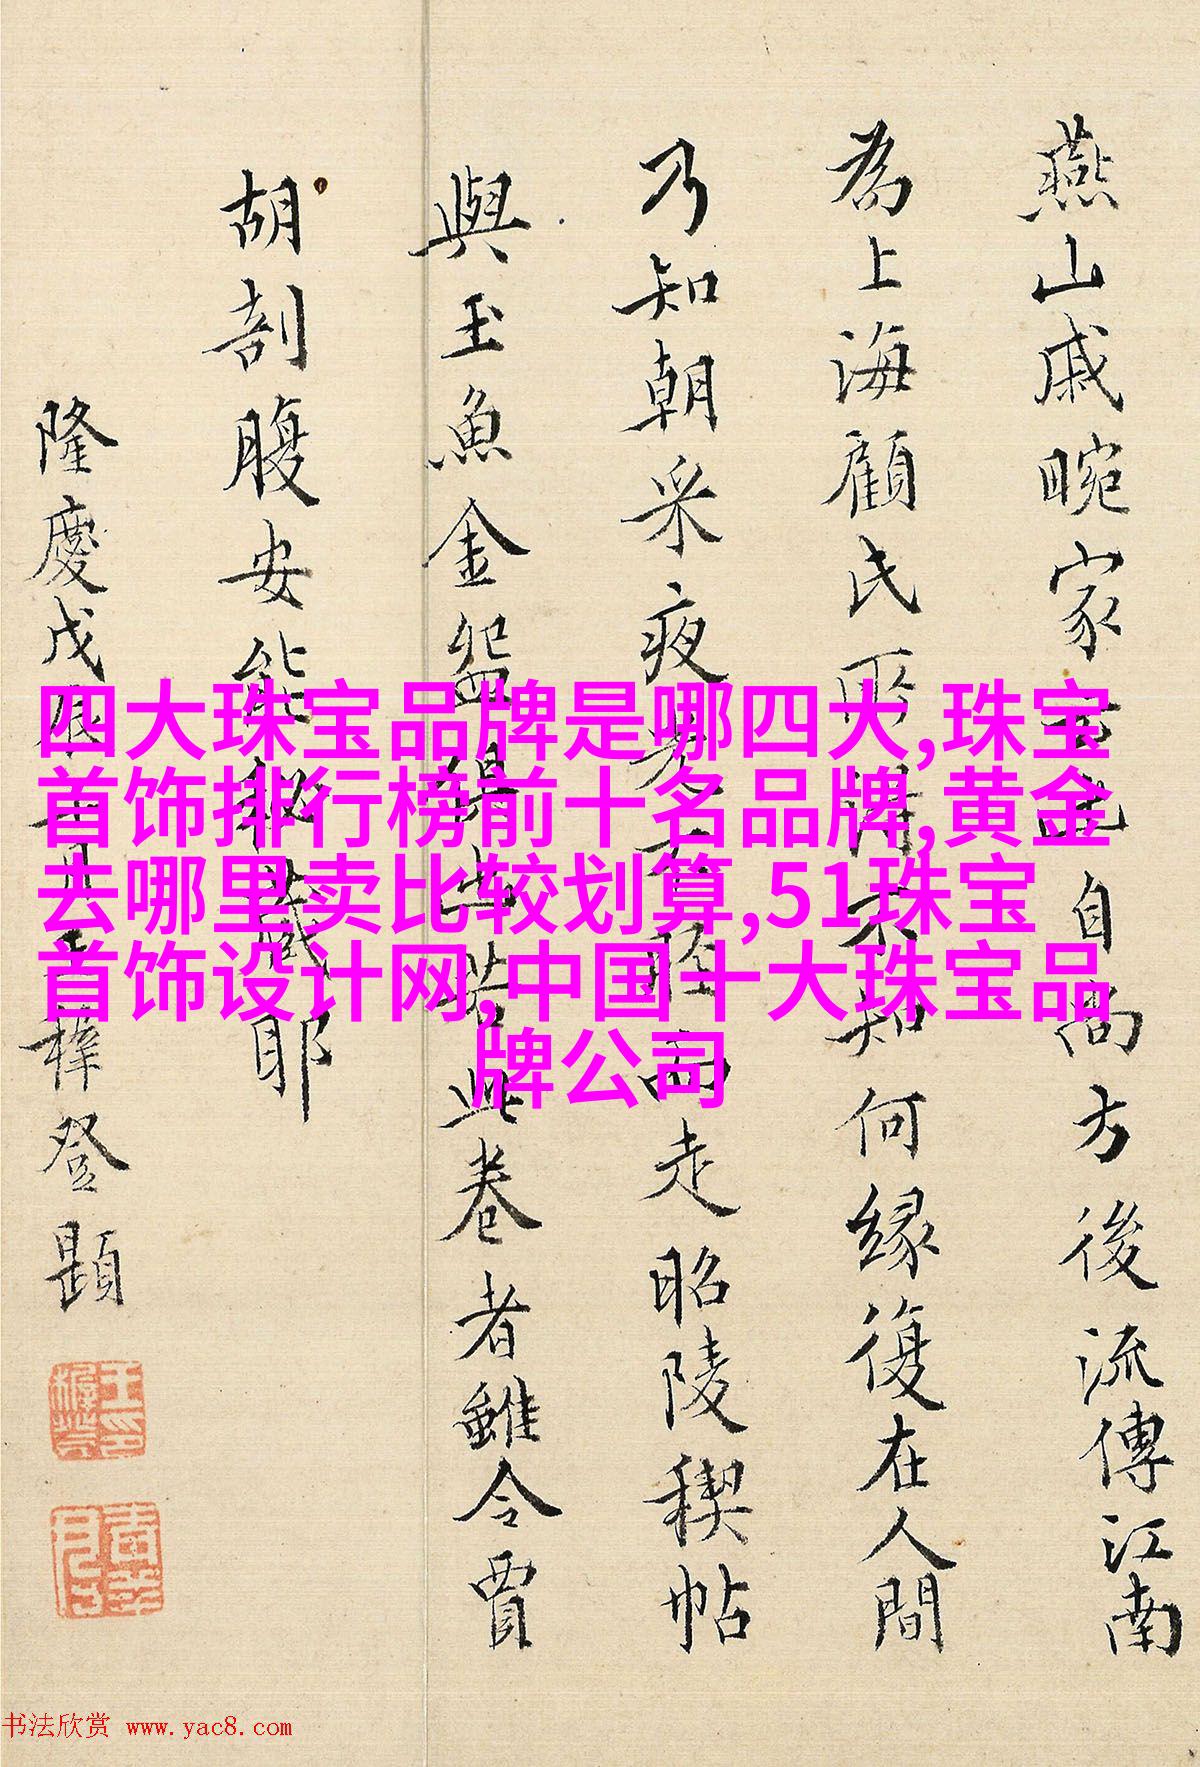 燕山戚畹家自尚方後流傳江南
為上海顧氏所得不知何緣復在人間
乃知朝采夜光不脛而走昭陵稧帖
與玉魚金盌出若此卷者雖令賈
胡剖腹安能秘藏耶
隆慶戊辰月王穉登題
四大珠宝品牌是哪四大,珠宝
首饰排行榜前十名品牌,黄金
去哪里卖比较划算,51珠宝
首饰设计网,中国十大珠宝品
牌公司
书法欣赏 www.yac8.com